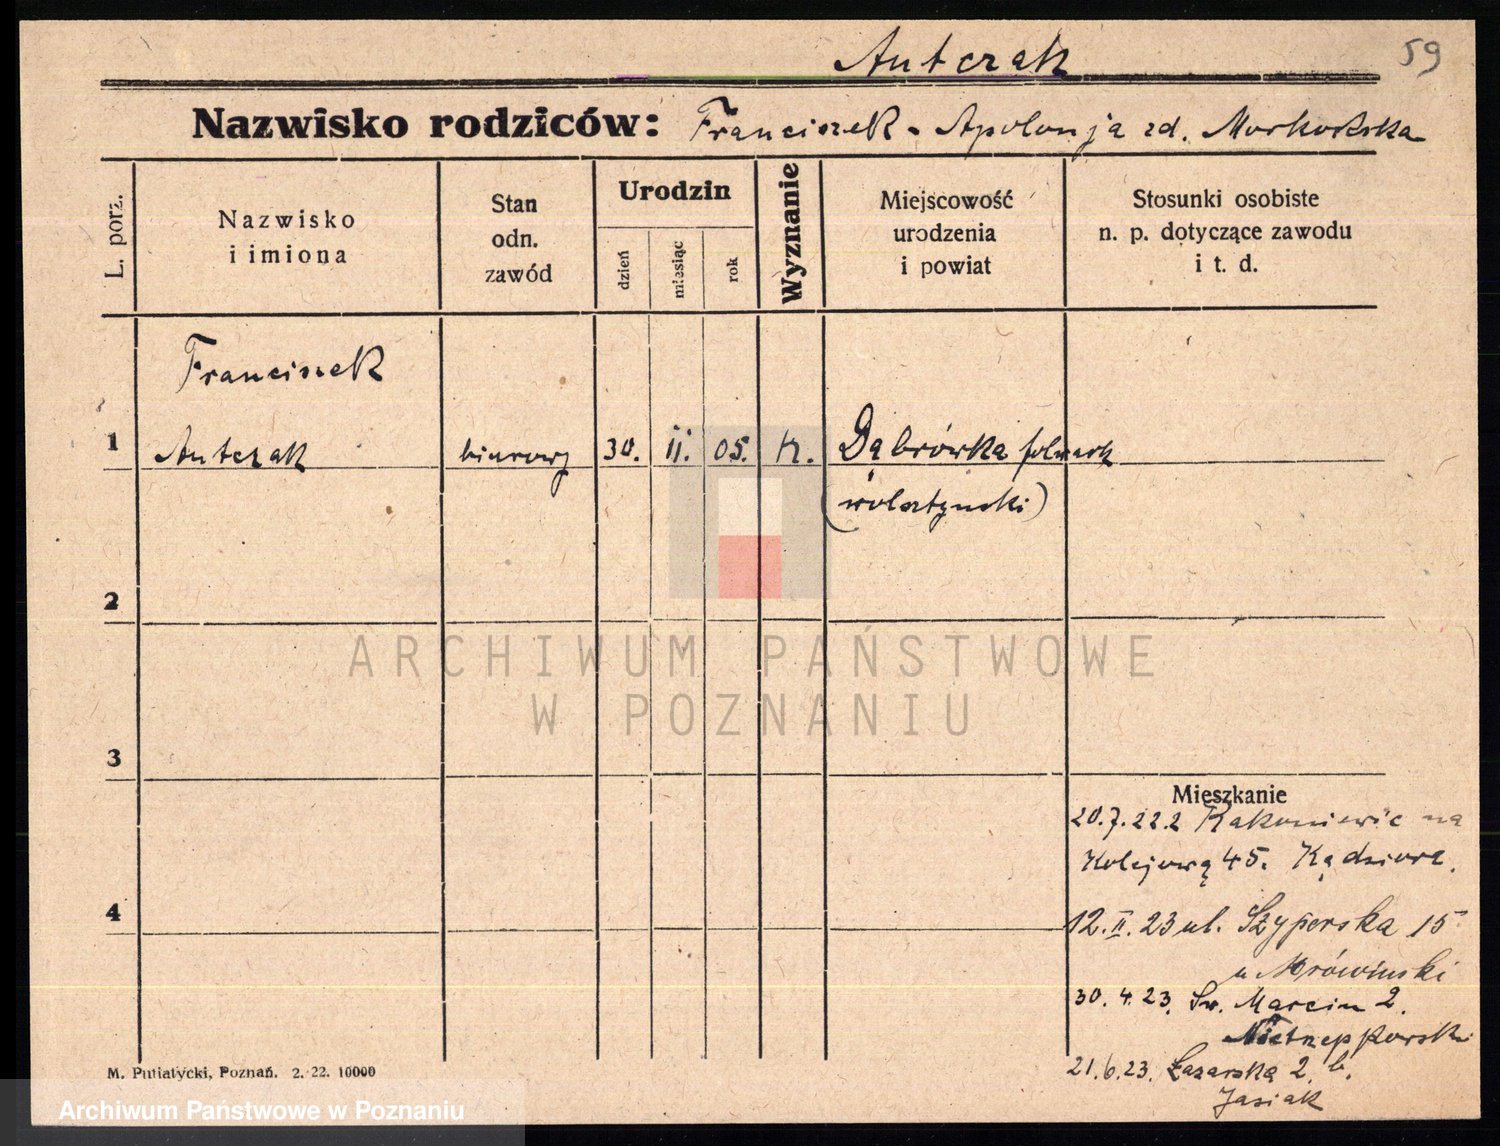 Antczak
59
Nazwisko rodziców: Franciszek - Apolonja zd.
L. porz.
Nazwisko i imiona
Stan odn. zawód
Urodzin
dzień
miesiąc
rok
Wyznanie
Miejscowość urodzenia i powiat
Stosunki osobiste n. p. dotyczące zawodu i t. d.
Franciszek
1 Antczak biurowy 30. 11. 05. K. Dąbrówka folwark
(wolsztyński)
2
ARCHIWUM PAŃSTWOWE
W POZNANIU
3
Mieszkanie
20.7.22 z Rakoniewic na
Kolejową 45. Kądziora.
4
12. II. 23 ul. Szyperska 15
u Mrówiński
30. 4. 23. Św. Marcin 2.
21.6.23. Łazarska 2 b.
Jasiak
M. Putiatycki, Poznań. 2. 22. 10000
Archiwum Państwowe w Poznaniu